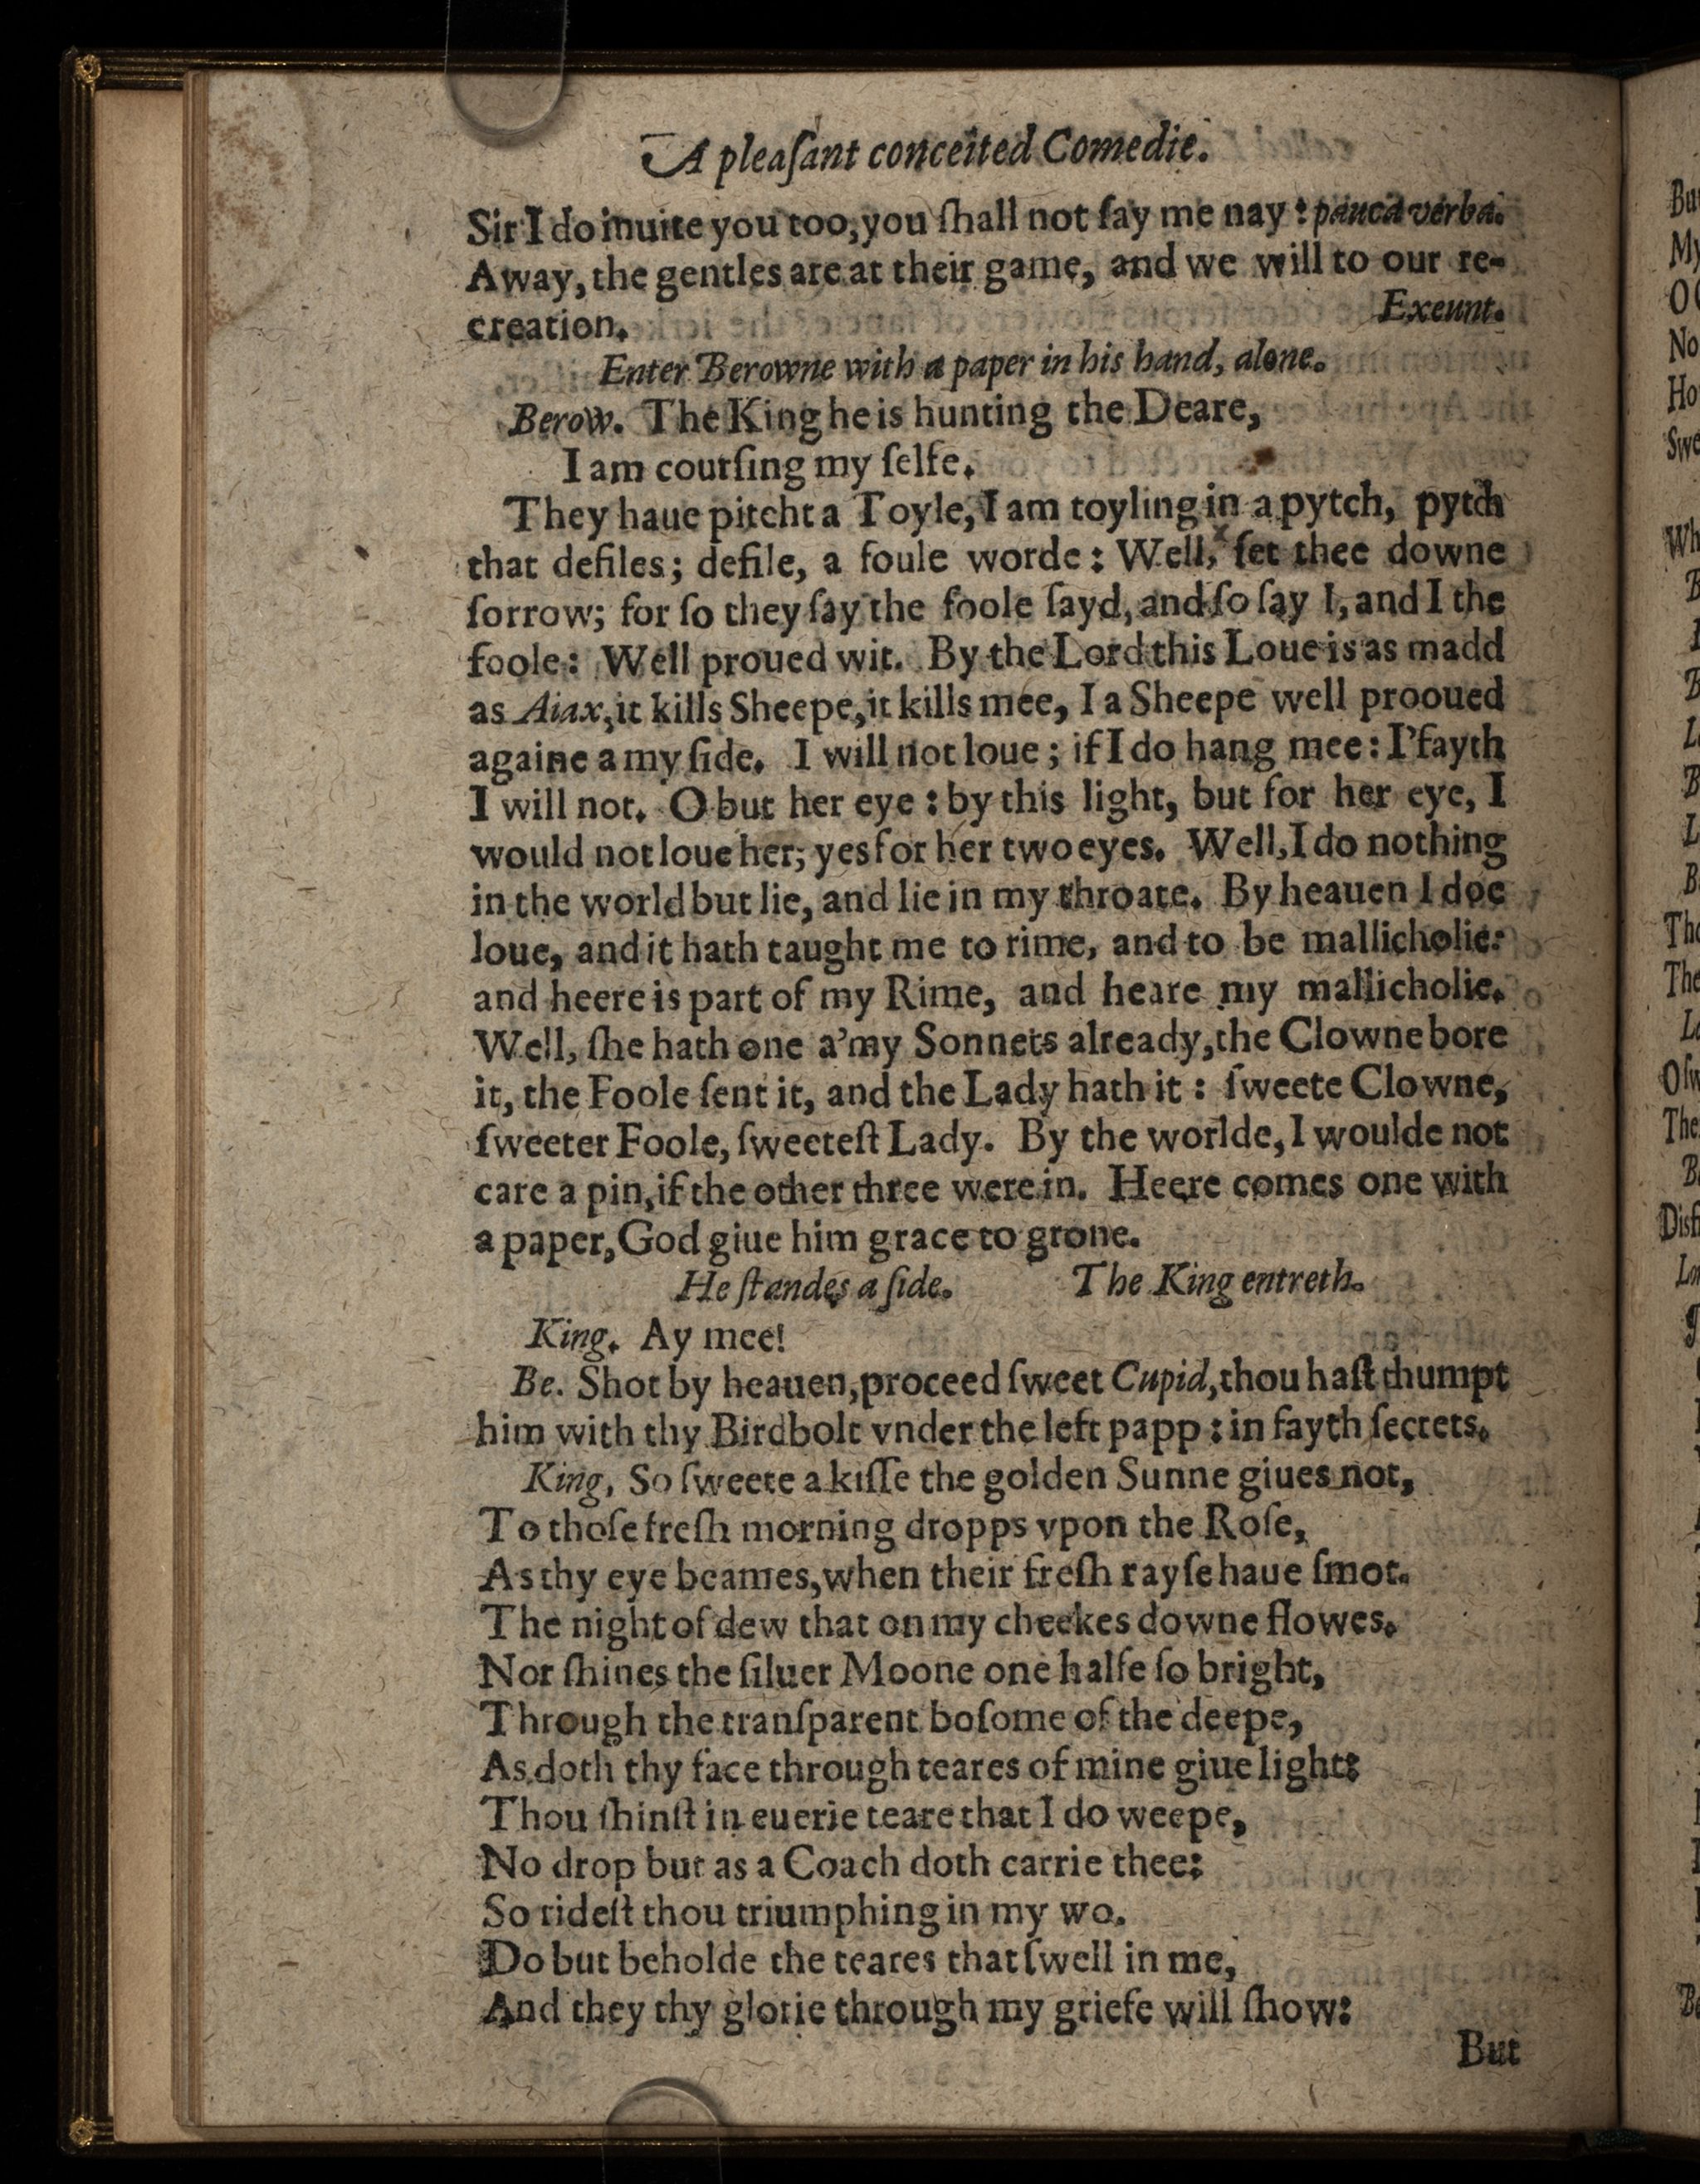 A pleaſant conceited Comedie.
Sir I do inuite you too, you ſhall not ſay me nay : pauca verba.
Away, the gentles are at their game, and we will to our re-
creation. Exeunt.
Enter Berowne with a paper in his hand, alone.
Berow. The King he is hunting the Deare,
I am courſing my ſelfe.
They haue pitcht a Toyle, I am toyling in a pytch, pytch
that defiles; defile, a foule worde : Well, ſet thee downe
ſorrow; for ſo they ſay the foole ſayd, and ſo ſay I, and I the
foole : Well proued wit. By the Lord this Loue is as madd
as Aiax, it kills Sheepe, it kills mee, I a Sheepe well prooued
againe a my ſide. I will not loue ; if I do hang mee : I'fayth
I will not. O but her eye : by this light, but for her eye, I
would not loue her; yes for her two eyes. Well, I do nothing
in the world but lie, and lie in my throate. By heauen I doe
loue, and it hath taught me to rime, and to be mallicholie:
and heere is part of my Rime, and heare my mallicholie.
Well, ſhe hath one a'my Sonnets already, the Clowne bore
it, the Foole ſent it, and the Lady hath it : ſweete Clowne,
ſweeter Foole, ſweeteſt Lady. By the worlde, I woulde not
care a pin, if the other three were in. Heere comes one with
a paper, God giue him grace to grone.
He ſtandes a ſide. The King entreth.
King. Ay mee!
Be. Shot by heauen, proceed ſweet Cupid, thou haſt thumpt
him with thy Birdbolt vnder the left papp : in fayth ſecrets.
King. So ſweete a kiſſe the golden Sunne giues not,
To thoſe freſh morning dropps vpon the Roſe,
As thy eye beames, when their freſh rayſe haue ſmot.
The night of dew that on my cheekes downe flowes.
Nor ſhines the ſiluer Moone one halfe ſo bright,
Through the tranſparent boſome of the deepe,
As doth thy face through teares of mine giue light:
Thou ſhinſt in euerie teare that I do weepe,
No drop but as a Coach doth carrie thee:
So rideſt thou triumphing in my wo.
Do but beholde the teares that ſwell in me,
And they thy glorie through my griefe will ſhow:
But